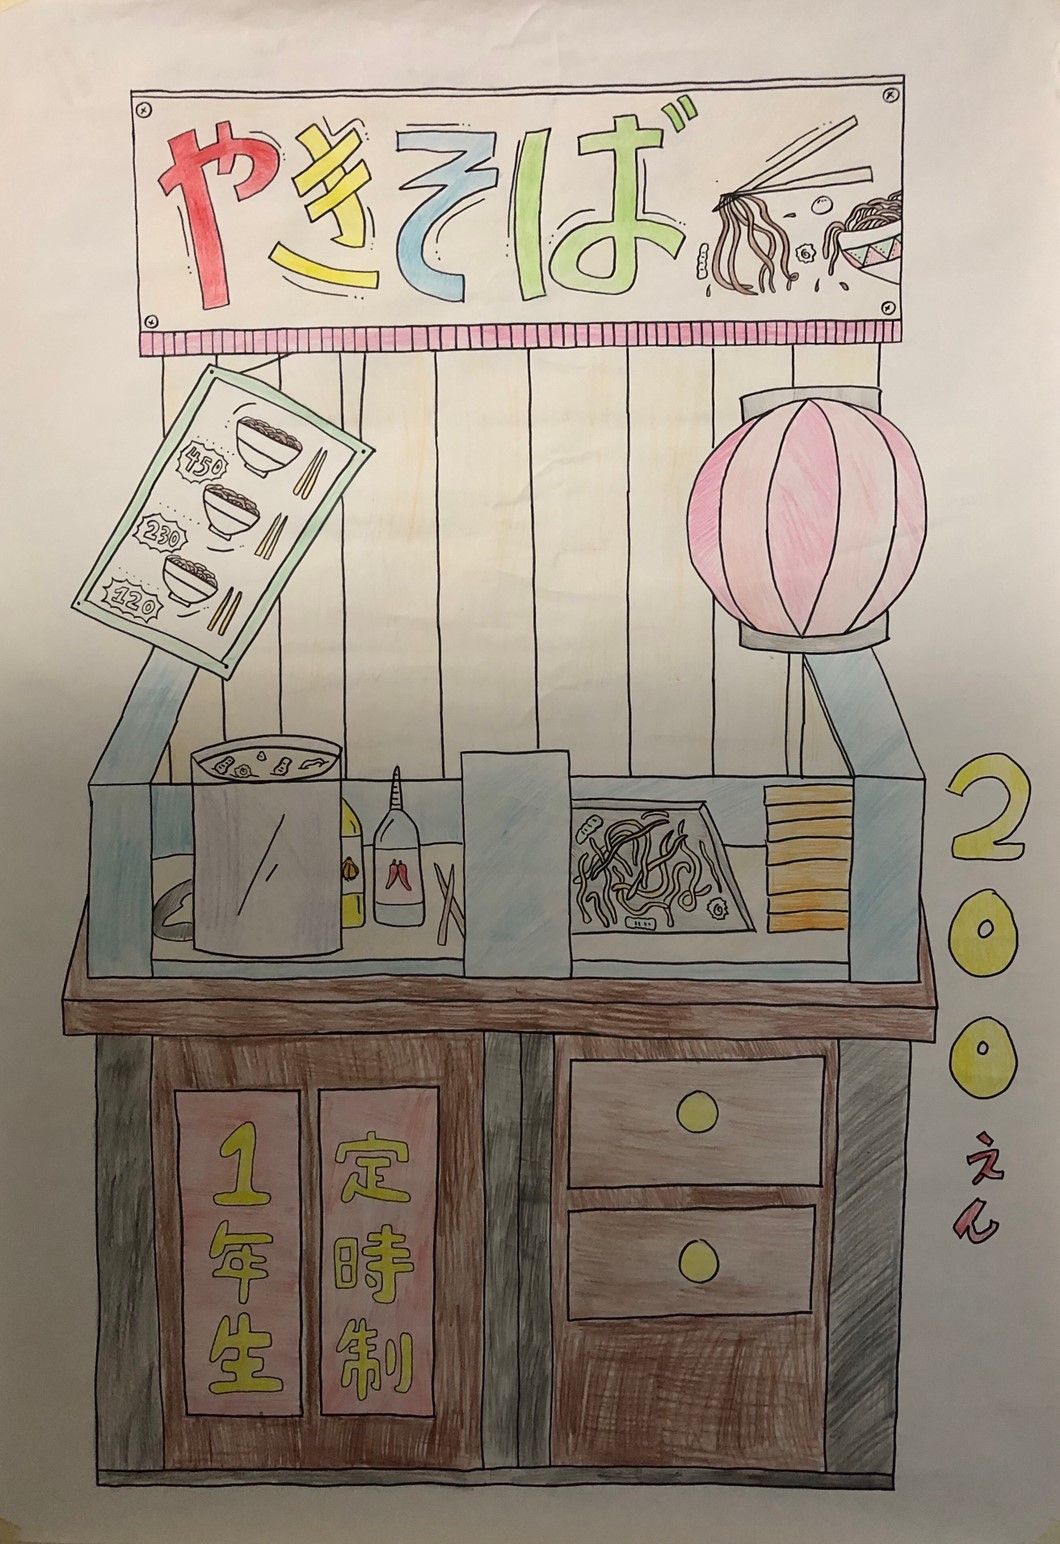 やきそば
450
230
120
200えん
定時制
1年生